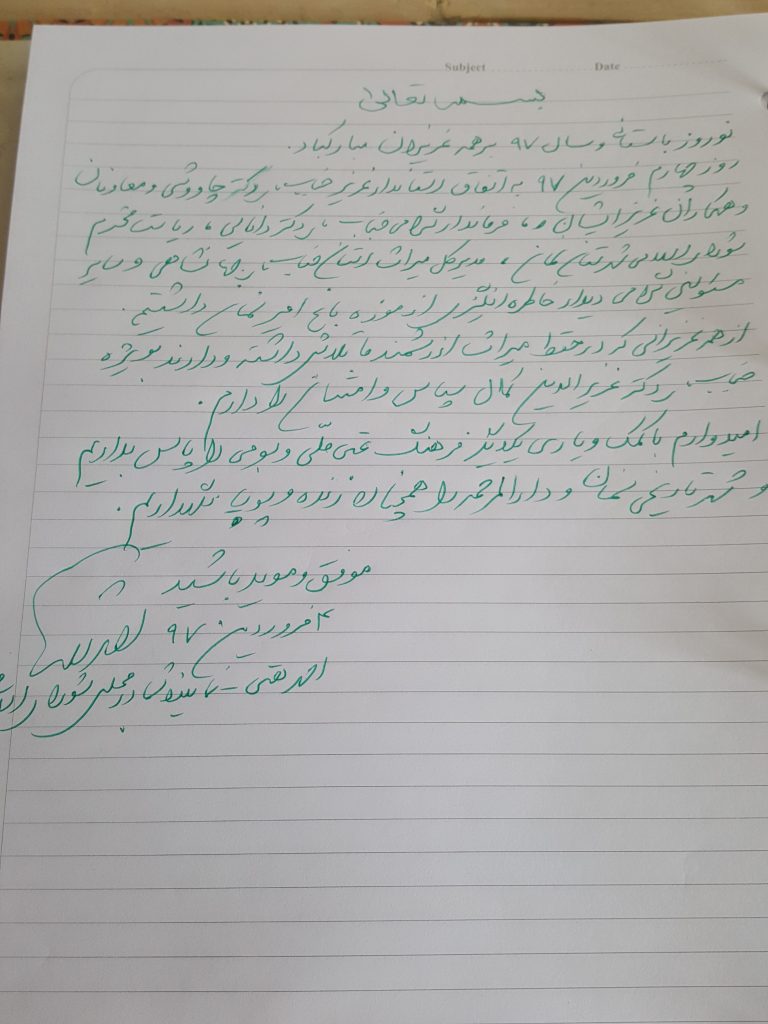 Subject Date
بسمه تعالی
نوروز باستانی و سال ۹۷ بر همه عزیزان مبارکباد.
روز چهارم فروردین ۹۷ به اتفاق استاندار عزیز جناب دکتر چاووشی و معاونان
و همکاران عزیز ایشان و فرماندار گرامی جناب دکتر دانایی، ریاست محترم
شورای اسلامی شهرستان ، مدیرکل میراث استان جناب شاهی و سایر
مسئولین گرامی دیدار خاطره انگیزی از موزه باغ امیر داشتیم.
از همه عزیزانی که در حفظ میراث ارزشمند ما تلاش داشته و دارند بویژه
جناب دکتر عزیزالدین کمال سپاس و امتنان را دارم.
امیدوارم با کمک و یاری یکدیگر فرهنگ غنی ملّی و بومی را پاس بداریم
و شهر تاریخی و دارالمرحمه را همچنان زنده و پویا نگهداریم.
موفق و موید باشید
۴ فروردین ۹۷
احمد نماینده شما در مجلس شورای